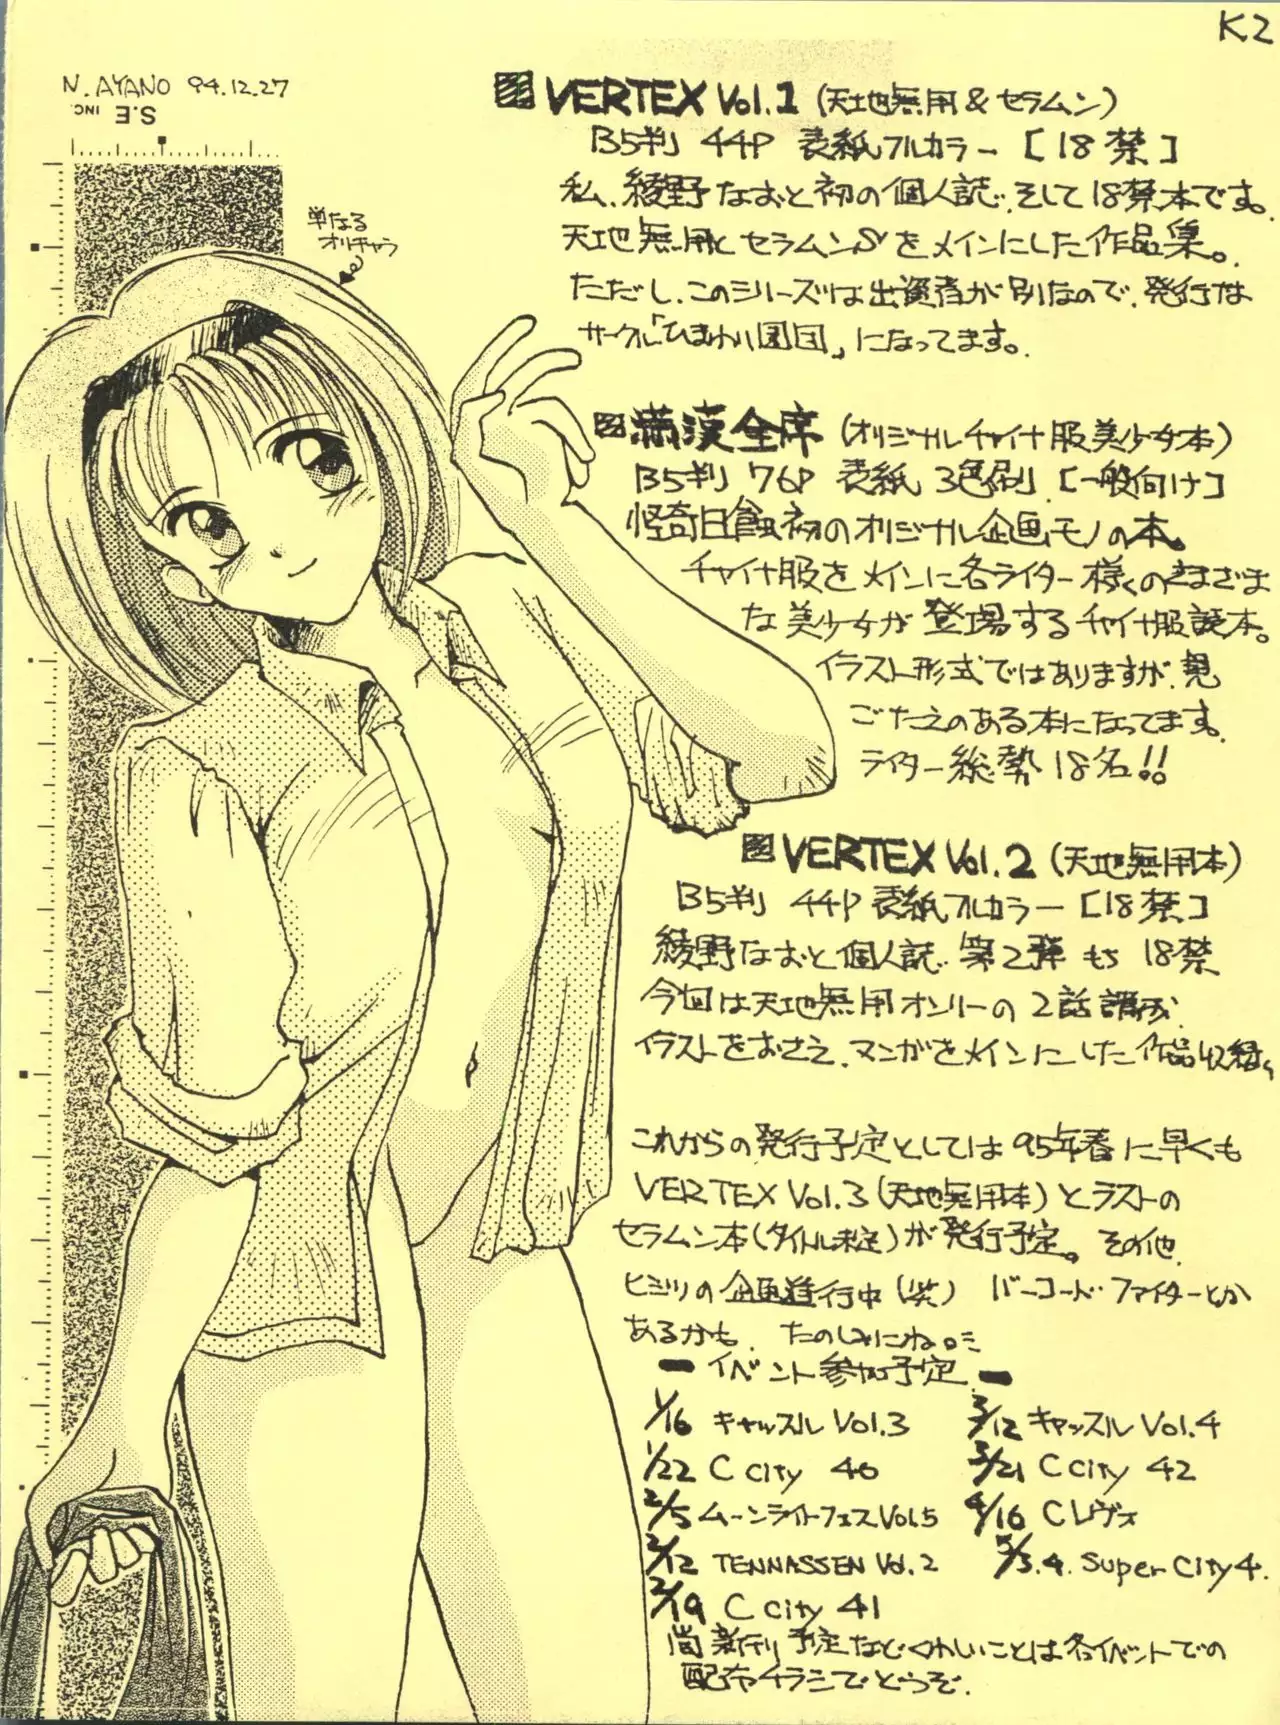 K2
N.AYANO 94.12.27
S.E INC.
単なる
オリキャラ
VERTEX Vol.1 (天地無用&セラムン)
B5判 44P 表紙フルカラー [18禁]
私、綾野なおと初の個人誌、そして18禁本です。
天地無用とセラムンSをメインにした作品集。
ただし、このシリーズは出資者が別なので、発行は
サークル「ひまわり園団」になってます。
満漢全席 (オリジナルチャイナ服美少女本)
B5判 76P 表紙 3色刷 [一般向け]
怪奇日蝕初のオリジナル企画モノの本。
チャイナ服をメインに各ライター様々のさまざま
な美少女が登場するチャイナ服読本。
イラスト形式ではありますが、見
ごたえのある本になってます。
ライター総勢18名!!
VERTEX Vol.2 (天地無用本)
B5判 44P 表紙フルカラー [18禁]
綾野なおと個人誌 第2弾 もち 18禁
今回は天地無用オンリーの2話構成
イラストをおさえ、マンガをメインにした作品収録。
これからの発行予定としては95年春に早くも
VERTEX Vol.3 (天地無用本)とラストの
セラムン本(タイトル未定)が発行予定。その他
ヒミツの企画進行中(笑) バーコード・ファイターとか
あるかも。たのしみにね。
ー イベント参加予定 ー
1/16 キャッスル Vol.3
1/22 C City 40
2/5 ムーンライトフェス Vol.5
2/12 TENNASSEN Vol.2
2/19 C City 41
3/12 キャッスル Vol.4
3/21 C City 42
4/16 Cレヴォ
5/3.4. Super City 4.
尚新刊予定などくわしいことは各イベントでの
配布チラシでどうぞ。